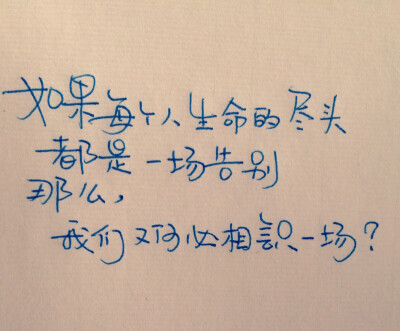 如果每个人生命的尽头
都是一场告别
那么,
我们又何必相识一场?